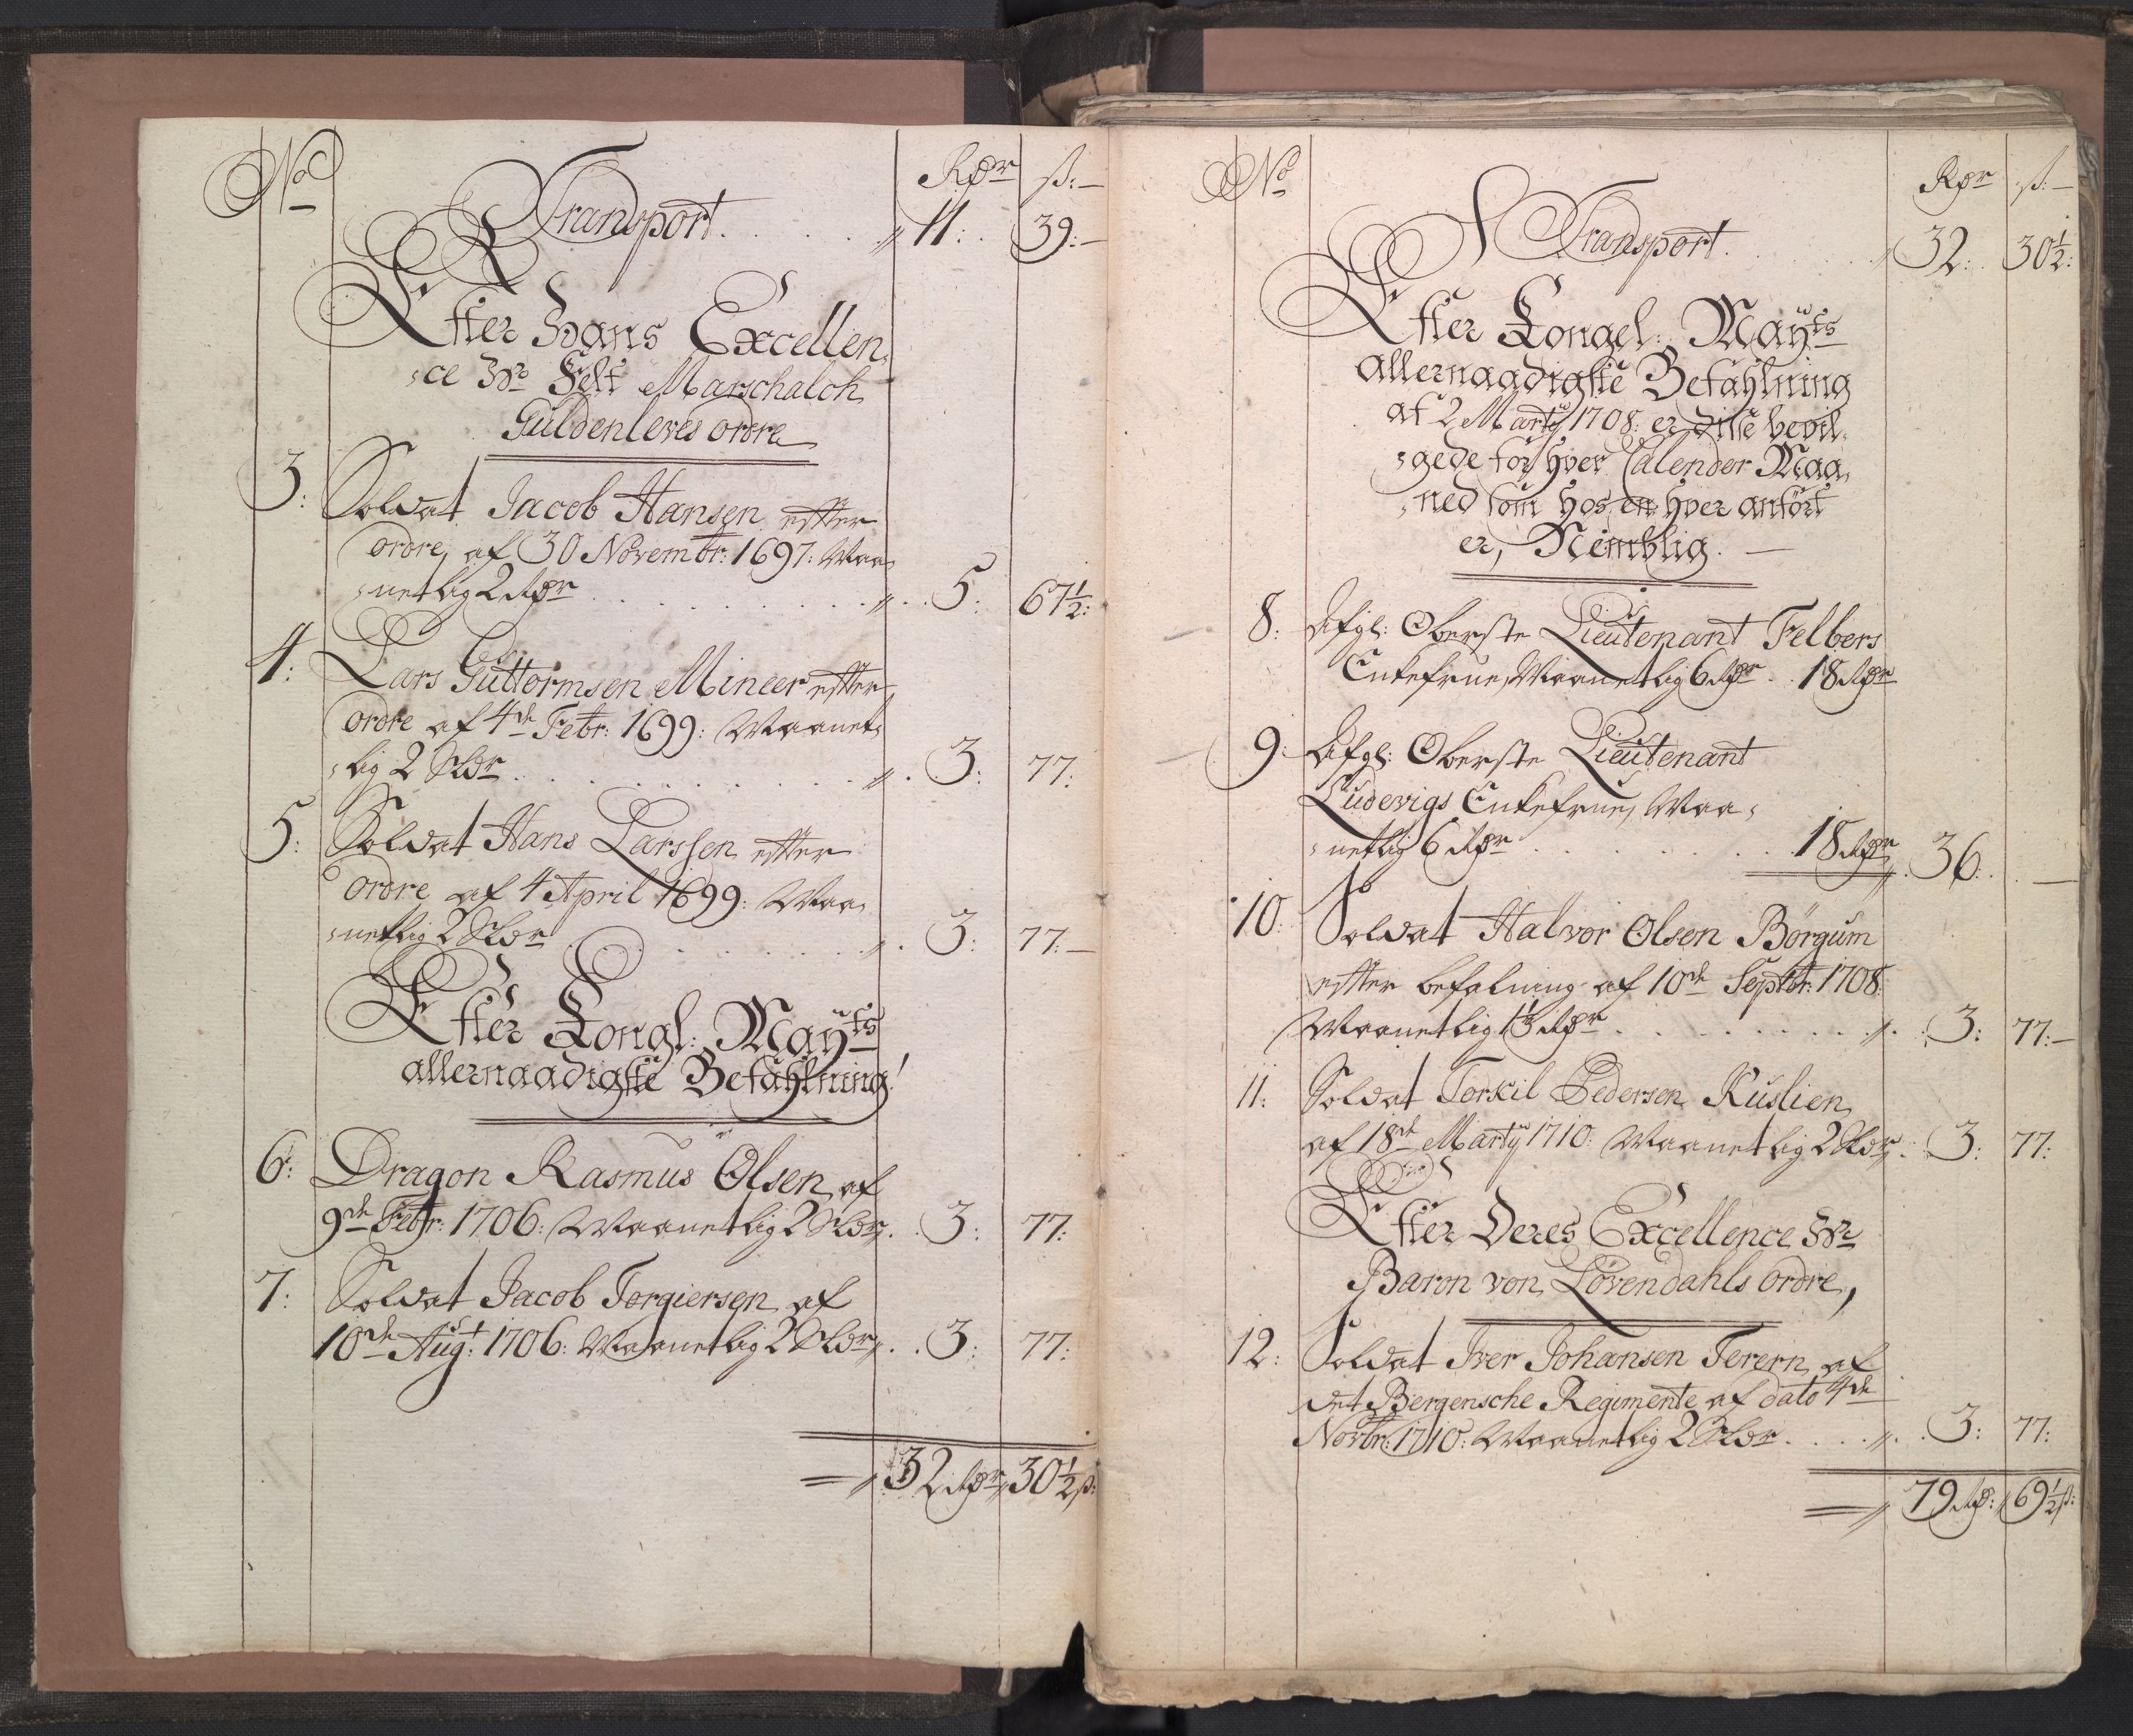 No
Rdr ß:
Transport . . . . . 11: 39:
Efter Hans Excellen
ce Hr Felt Marschalck
Güldenlewes ordre
3: Soldat Jacob Hansen efter
ordre af 30 Novembr: 1697: Maa
netlig 2 Rdr . . . . 5: 67½:
4: Lars Güttormsen Mineer efter
ordre af 4de Febr: 1699: Maanet
lig 2 Sldr . . . . 3: 77:
5: Soldat Hans Larssen efter
ordre af 4 April 1699: Maa
netlig 2 Sldr . . . . 3: 77:
Efter Kongl: Mayts
allernaadigste Befahlning
6: Dragon Rasmus Olsen af
9de Febr: 1706: Maanetlig 2 Sldr . 3: 77:
7: Soldat Jacob Torgiersen af
10de Augst: 1706: Maanetlig 2 Sldr . . 3: 77:
32 Rdr 30½ ß:
No
Rdr ß:
Transport . . . . 32: 30½:
Efter Kongel: Mayts
allernaadigste Befahlning
af 2 Martÿ 1708: er disse bevil
gede for hver Calender Maa
ned som hos en hver anført
er, Nemblig.
8: Afgl: Oberste Lieutenant Felbers
Enkefrue, Maanetlig 6 Rdr . . 18 Rdr
9: Afgl: Oberste Lieutenant
Ludewigs Enkefrue, Maa
netlig 6 Rdr . . . . 18 Rdr 36.
10: Soldat Halvor Olsen Börgum
efter befalning af 10de Septbr: 1708
Maanetlig Rdr . . . . 3: 77:
11: Soldat Torkil Pedersen Kuslien
af 18de Martÿ 1710: Maanetlig 2 Sldr . 3: 77:
Efter Deres Excellence Hr
Baron von Lövendahls ordre,
12: Soldat Iver Johansen Ferern af
det Bergensche Regimente af dato 4de
Novbr: 1710: Maanetlig 2 Sldr . . . . 3: 77:
79 Rd: 69½ ß: